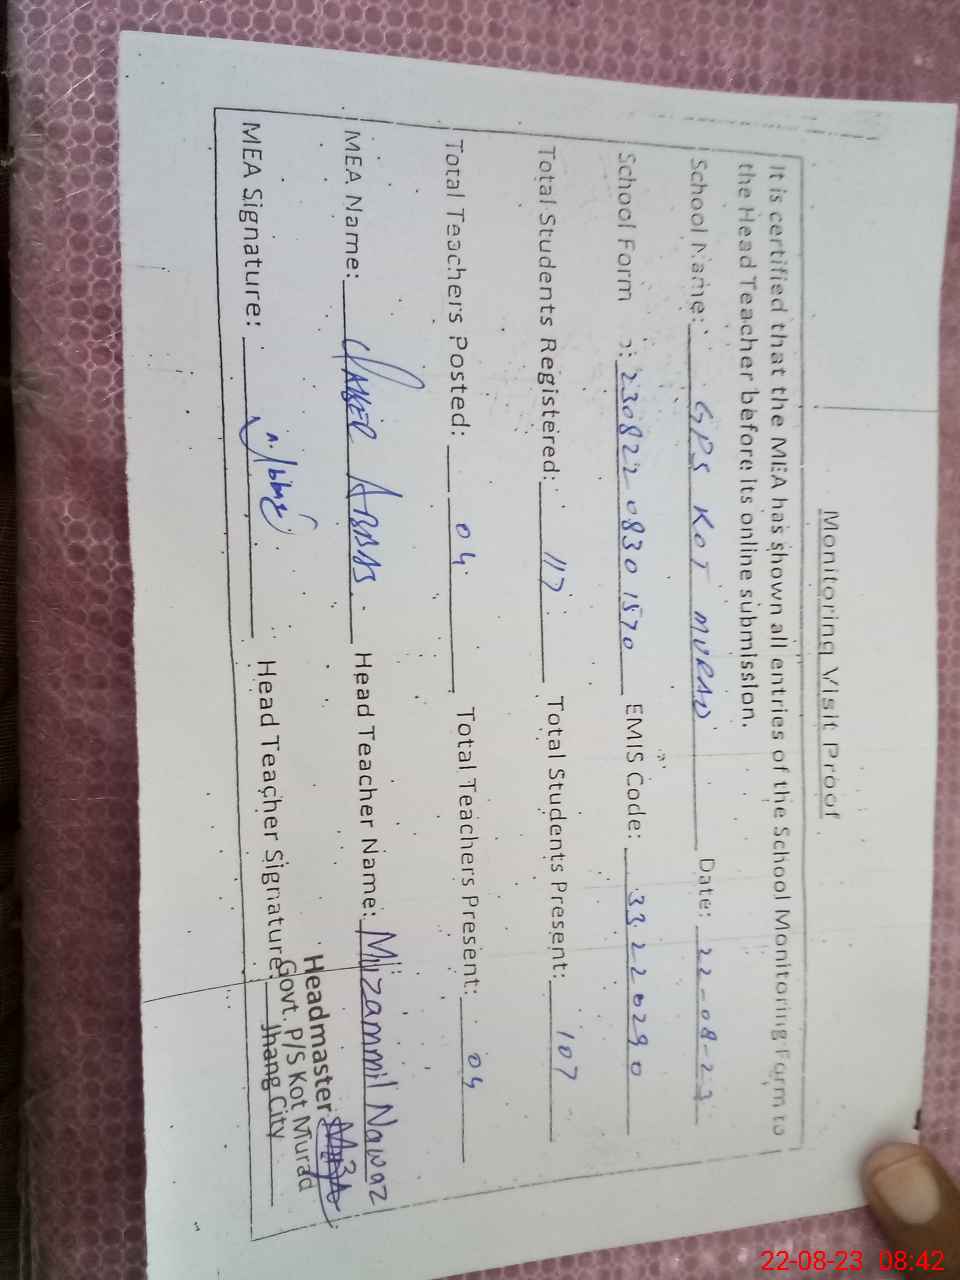 Monitoring Visit Proof
It is certified that the MEA has shown all entries of the School Monitoring Form to
the Head Teacher before its online submission.
School Name: GPS KOT MURAD Date: 22-08-23
School Form : 230822 0830 1570 EMIS Code: 33220290
Total Students Registered: 117 Total Students Present: 107
Total Teachers Posted: 04 Total Teachers Present: 04
MEA Name: ABBAS Head Teacher Name: Muzammil Nawaz
MEA Signature: Head Teacher Signature:
Headmaster
Govt. P/S Kot Murad
Jhang City
22-08-23 08:42